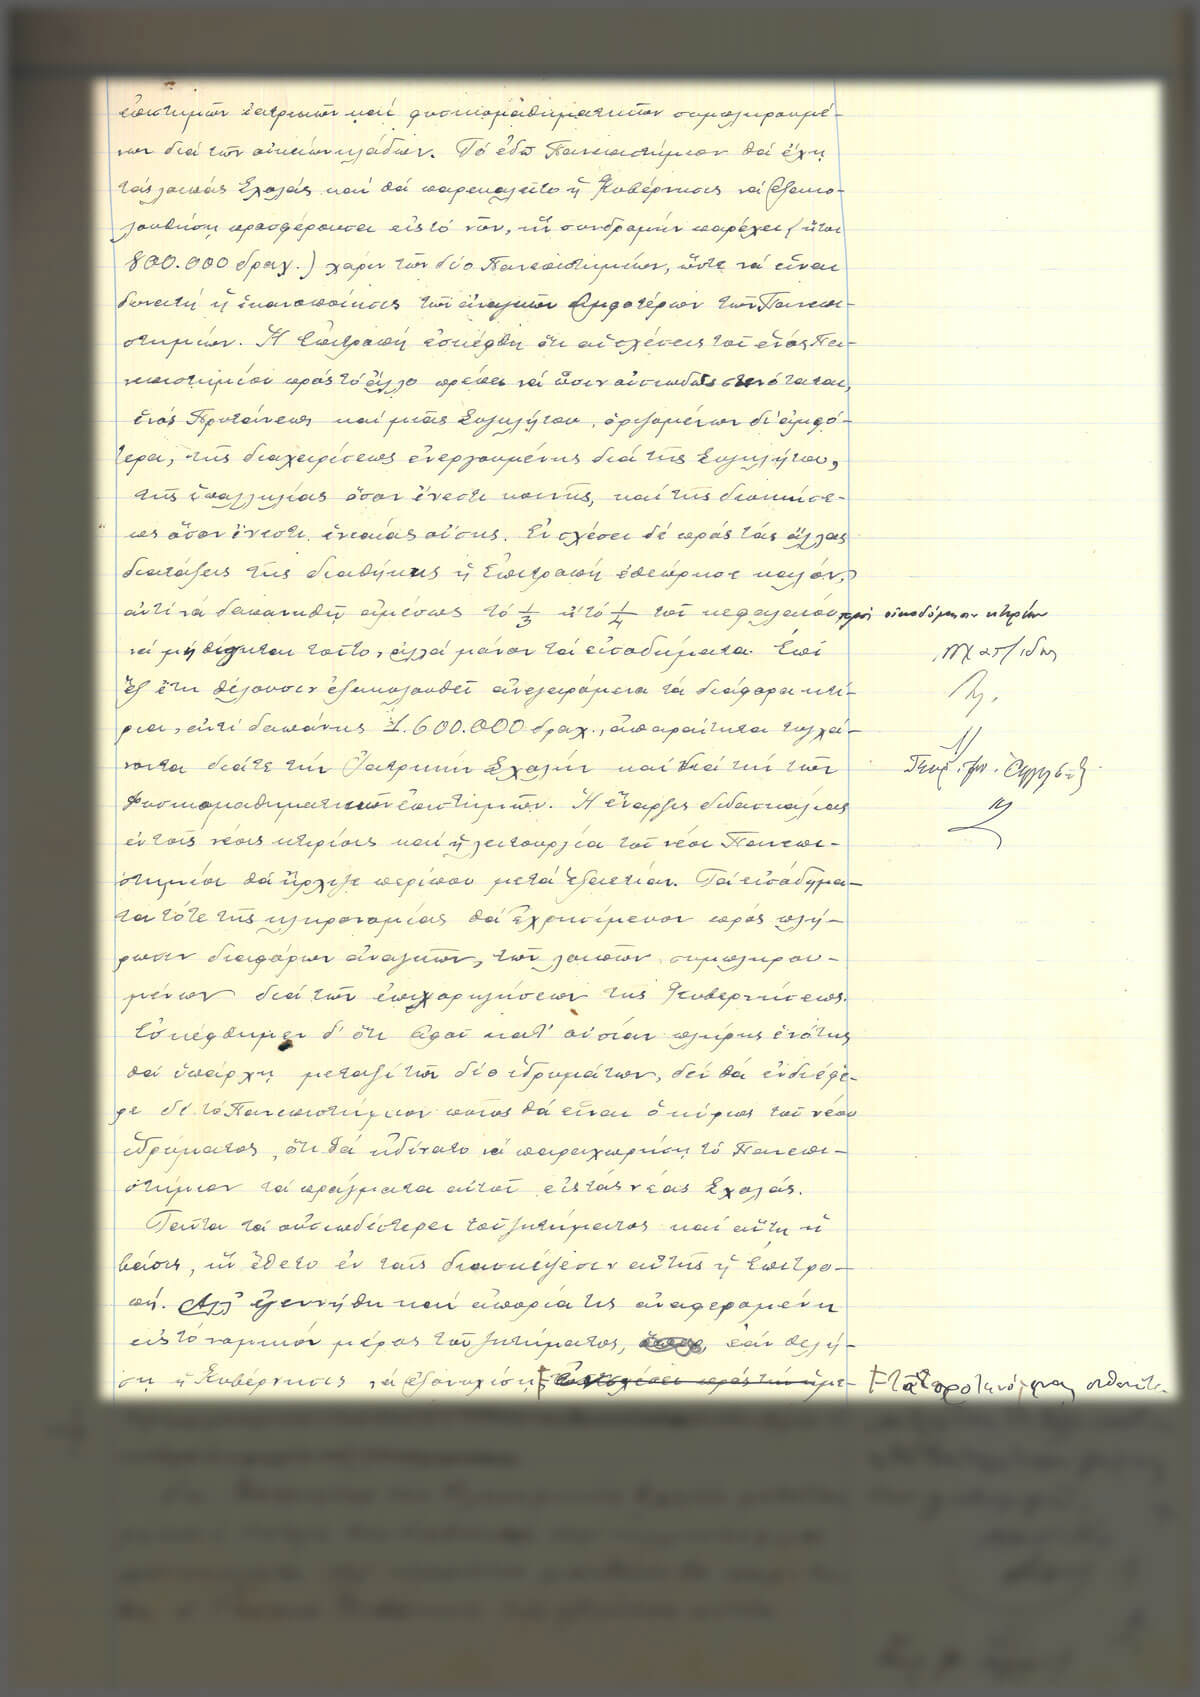 ἐπιστημῶν ἰατρικῶν καί φυσικομαθηματικῶν συμπληρουμέ-
νων διά τῶν οἰκείων κλάδων. Τό ἐδῶ Πανεπιστήμιον θά ἔχῃ
τάς λοιπάς Σχολάς καί θά παρεκαλεῖτο ἡ Κυβέρνησις νά ἐξακο-
λουθήσῃ προσφέρουσα εἰς τό νῦν, ἥν συνδρομήν παρέχει (ἤτοι
800.000 δραχ.) χάριν τῶν δύο Πανεπιστημίων, ὥστε νά εἶναι
δυνατή ἡ ἱκανοποίησις τῶν ἀναγκῶν ἀμφοτέρων τῶν Πανεπι-
στημίων. Ἡ Ἐπιτροπή ἐσκέφθη ὅτι αἱ σχέσεις τοῦ ἑνός Πα-
νεπιστημίου πρός τό ἄλλο πρέπει νά ὦσιν οὐσιωδῶς στενόταται,
ἑνός Πρυτάνεως καί μιᾶς Συγκλήτου, ὁριζομένων δι' ἀμφό-
τερα, τῆς διαχειρίσεως ἐνεργουμένης διά τῆς Συγκλήτου,
τῆς ὑπαλληλίας ὅσον ἔνεστι κοινῆς, καί τῆς διοικήσε-
ως ὅσον ἔνεστι ἑνιαίας οὔσης. Ἐν σχέσει δέ πρός τάς ἄλλας
διατάξεις τῆς διαθήκης ἡ Ἐπιτροπή ἐθεώρησε καλόν,
ἀντί νά δαπανηθῇ ἀμέσως τό 1/3 ἤ τό 1/4 τοῦ κεφαλαίου πρός οἰκοδόμησιν κτιρίων
νά μή θίγηται τοῦτο, ἀλλά μόνον τά εἰσοδήματα. Ἐπί
ἕξ ἔτη θέλουσιν ἐξακολουθεῖ ἀνεγειρόμενα τά διάφορα κτί-
ρια, ἀντί δαπάνης 1.600.000 δραχ., ἀπαραίτητα τυγχά-
νοντα διά τε τήν Ἰατρικήν Σχολήν καί διά τήν τῶν
Φυσικομαθηματικῶν ἐπιστημῶν. Ἡ ἔναρξις διδασκαλίας
ἐν τοῖς νέοις κτιρίοις καί ἡ λειτουργία τοῦ νέου Πανεπι-
στημίου θά ἤρχιζε περίπου μετά ἑξαετίαν. Τά εἰσοδήμα-
τα τότε τῆς κληρονομίας θά ἐχρησίμευον πρός πλή-
ρωσιν διαφόρων ἀναγκῶν, τῶν λοιπῶν συμπληρου-
μένων διά τῶν ἐπιχορηγήσεων τῆς Κυβερνήσεως.
Ἐσκέφθημεν δ' ὅτι ἀφοῦ κατ' οὐσίαν πλήρης ἑνότης
θά ὑπάρχῃ μεταξύ τῶν δύο ἱδρυμάτων, δέν θά ἐνδιέφε-
ρε δέ τό Πανεπιστήμιον ποῖος θά εἶναι ὁ κύριος τοῦ νέου
ἱδρύματος, ὅτι θά ἠδύνατο νά παραχωρήσῃ τό Πανεπι-
στήμιον τά πράγματα αὐτοῦ εἰς τάς νέας Σχολάς.
Ταῦτα τά οὐσιωδέστερα τοῦ ζητήματος καί αὕτη ἡ
βάσις, ἥν ἔθετο ἐν ταῖς διασκέψεσιν αὐτῆς ἡ Ἐπιτρο-
πή. Ἀλλ' ἐγεννήθη καί ἀπορία τις ἀναφερομένη
εἰς τό νομικόν μέρος τοῦ ζητήματος, ἐάν θελή-
σῃ ἡ Κυβέρνησις νά ἐξονυχίσῃ